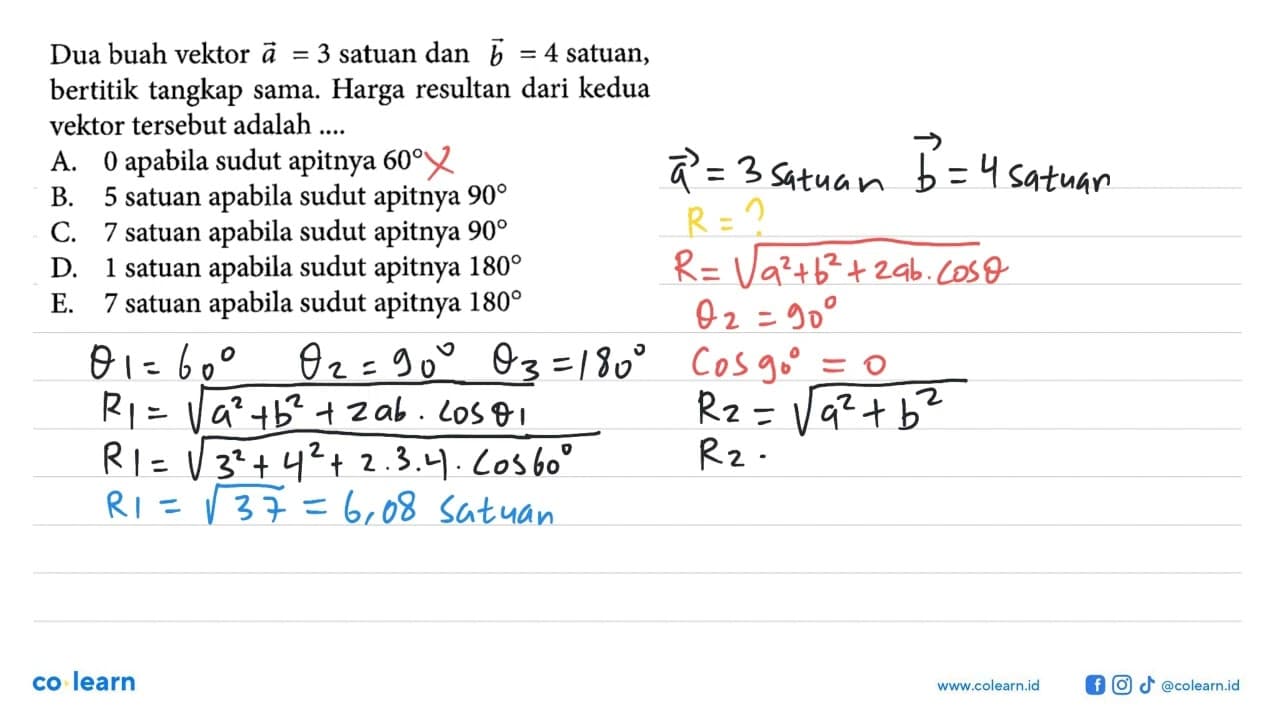 Dua buah vektor a⃗ = 3 satuan dan b⃗ = 4 satuan,
bertitik tangkap sama. Harga resultan dari kedua
vektor tersebut adalah ....
A. 0 apabila sudut apitnya 60° X
B. 5 satuan apabila sudut apitnya 90°
C. 7 satuan apabila sudut apitnya 90°
D. 1 satuan apabila sudut apitnya 180°
E. 7 satuan apabila sudut apitnya 180°
a⃗ = 3 satuan b⃗ = 4 satuan
R = ?
R = √a²+b²+2ab.cosθ
θ2 = 90°
Cos 90° = 0
R2 = √a²+b²
R2 .
θ1 = 60° θ2 = 90° θ3 = 180°
R1 = √a²+b²+2ab.cosθ1
R1 = √3²+4²+2.3.4.cos60°
R1 = √37 = 6,08 satuan
co learn
www.colearn.id
@colearn.id